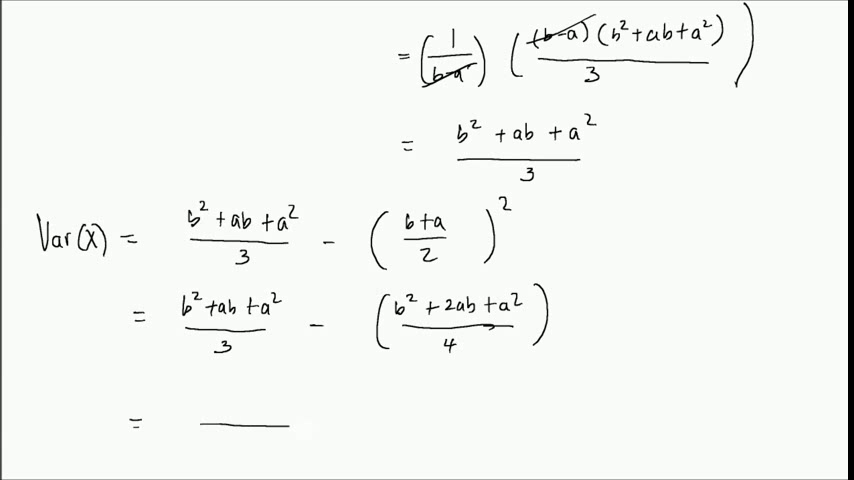 = (1/(b-a)) ((b-a)(b²+ab+a²)/3)
= (b² + ab + a²)/3
Var(X) = (b²+ab+a²)/3 - ((b+a)/2)²
= (b²+ab+a²)/3 - ((b²+2ab+a²)/4)
=